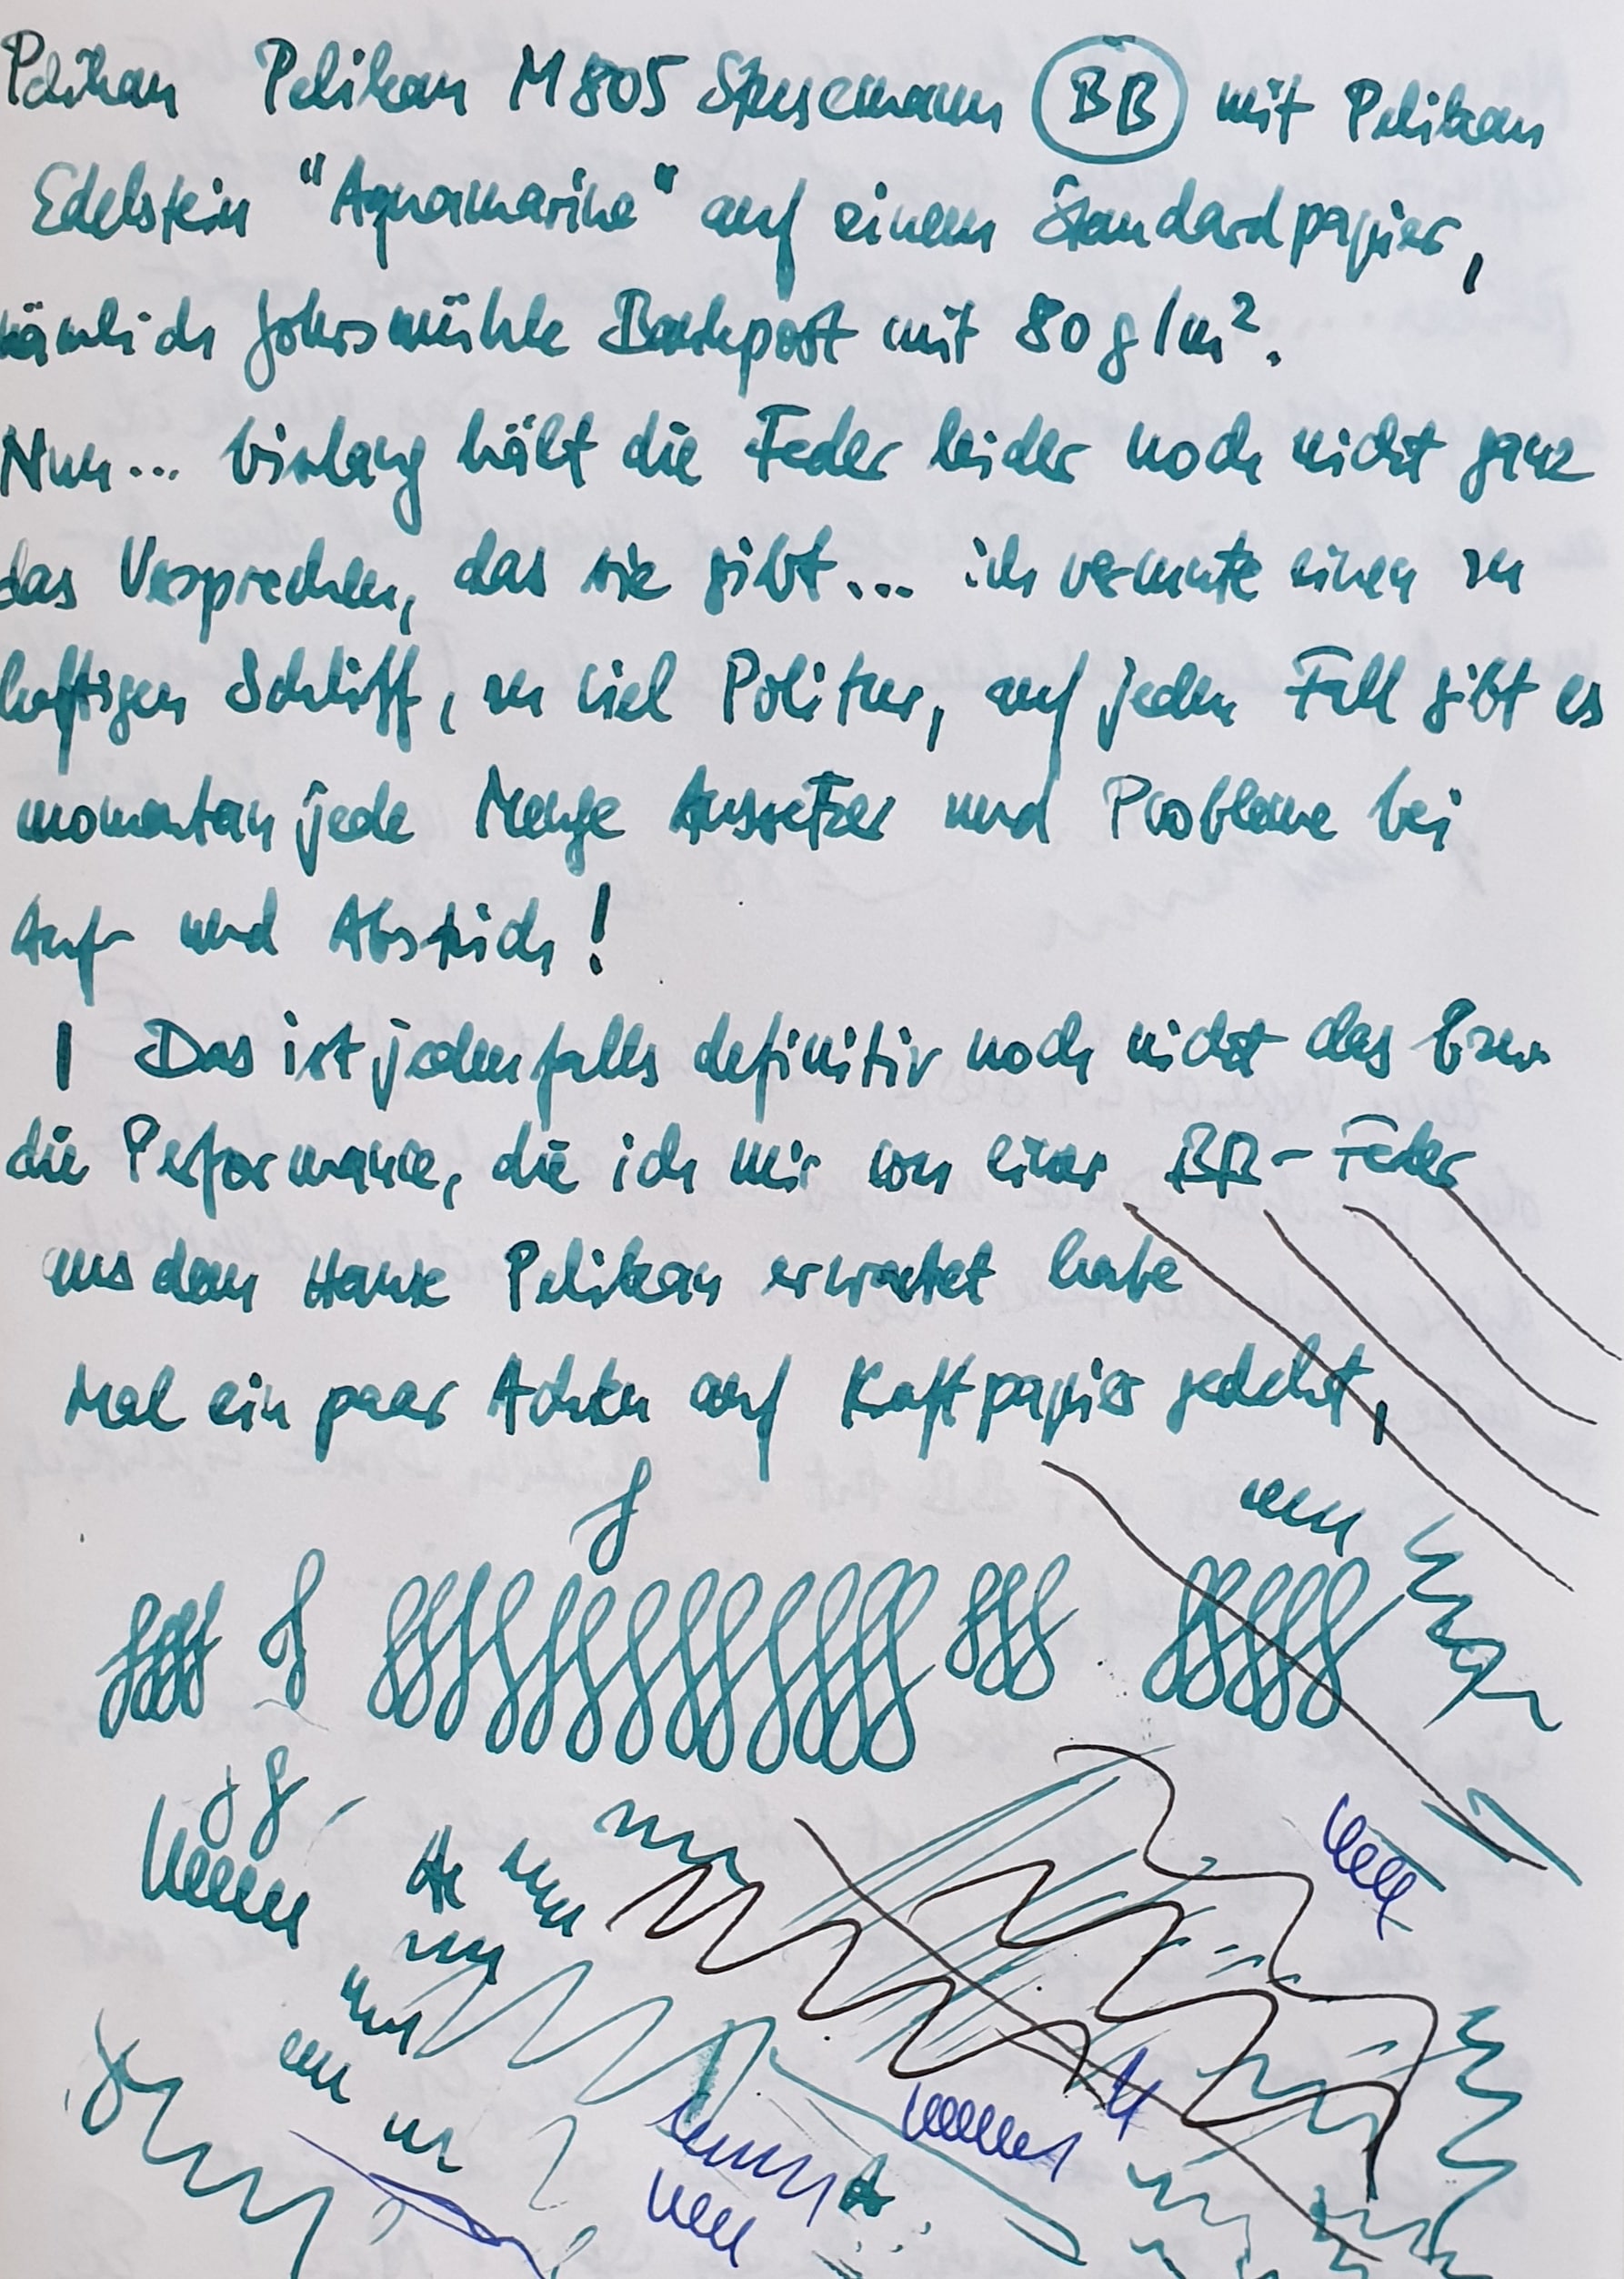 Pelikan Pelikan M805 Stresemann BB mit Pelikan
Edelstein "Aquamarine" auf einem Standardpapier,
nämlich Gohrsmühle Bankpost mit 80 g/m².
Nun... bislang hält die Feder leider noch nicht ganz
das Versprechen, das sie gibt... ich vermute einen zu
heftigen Schliff, zu viel Politur, auf jeden Fall gibt es
momentan jede Menge Aussetzer und Probleme bei
Auf- und Abstrich!
| Das ist jedenfalls definitiv noch nicht das bzw.
die Performance, die ich mir von einer BB-Feder
aus dem Hause Pelikan erwartet habe
Mal ein paar Achten auf Kraftpapier gedreht,